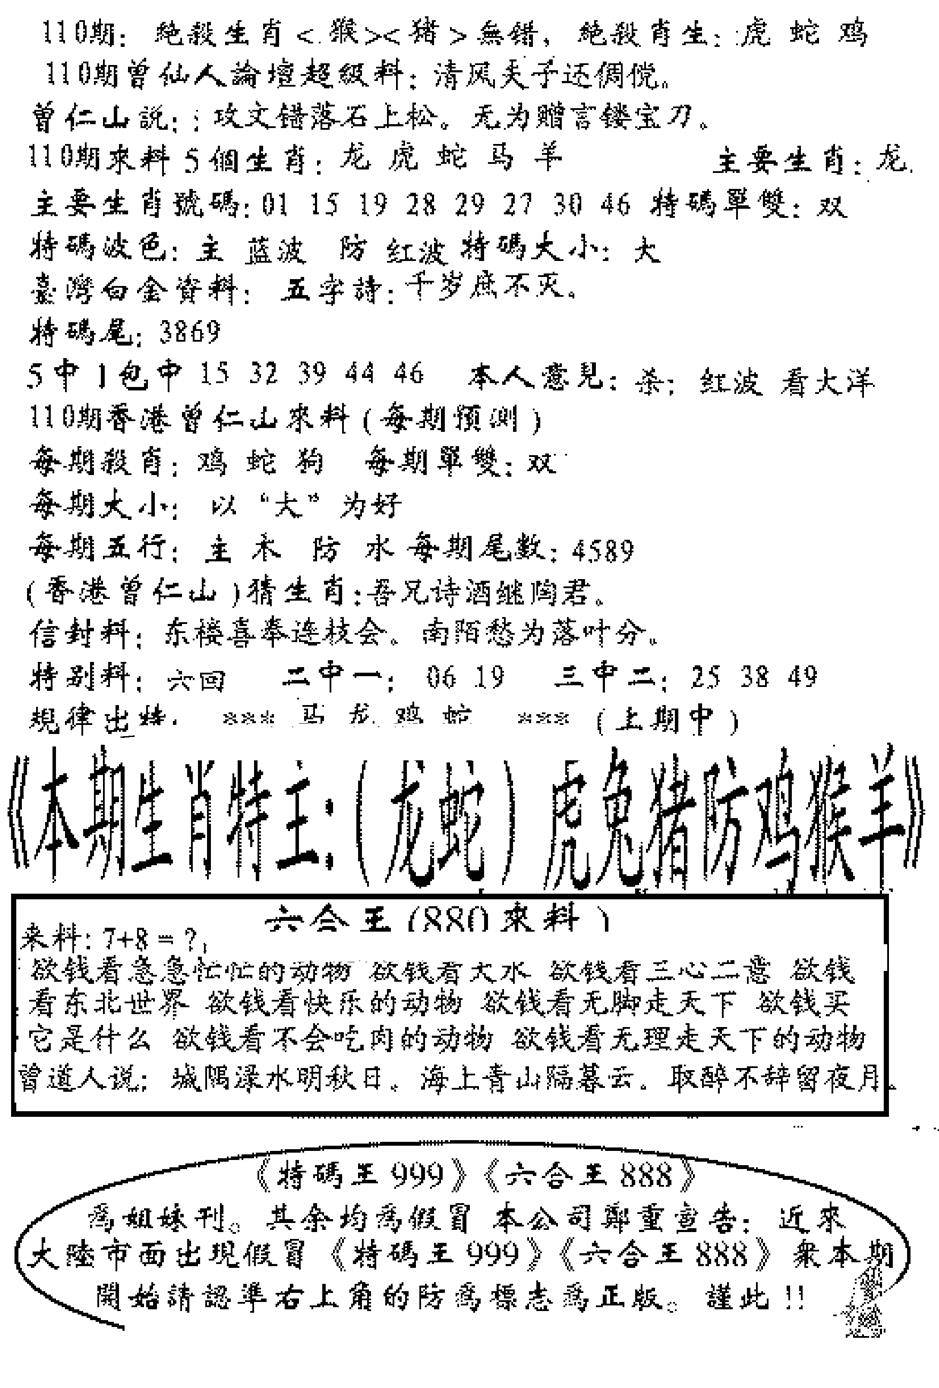 110期: 絶殺生肖<猴><猪>無错, 絶殺肖生: 虎 蛇 鸡
110期曾仙人論壇超級料: 清风天子还倜傥。
曾仁山説: 攻文错落石上松。无为赠言镂宝刀。
110期來料 5個生肖: 龙 虎 蛇 马 羊 主要生肖: 龙
主要生肖號碼: 01 15 19 28 29 27 30 46 特碼單雙: 双
特碼波色: 主 蓝波 防 红波 特碼大小: 大
臺灣白金資料: 五字詩: 千岁庶不灭。
特碼尾: 3869
5中1包中 15 32 39 44 46 本人意見: 杀: 红波 看大洋
110期香港曾仁山來料(每期預測)
每期殺肖: 鸡 蛇 狗 每期單雙: 双
每期大小: 以“大”为好
每期五行: 主 木 防 水 每期尾數: 4589
(香港曾仁山)猜生肖: 吾兄诗酒继陶君。
信封料: 东楼喜奉连枝会。南陌愁为落叶分。
特别料: 六回 二中一: 06 19 三中二: 25 38 49
規律出特: *** 马 龙 鸡 蛇 *** (上期中)
《本期生肖特主:(龙蛇)虎兔猪防鸡猴羊》
六合王(880來料)
来料: 7+8=?
欲钱看急急忙忙的动物 欲钱看大水 欲钱看三心二意 欲钱
看东北世界 欲钱看快乐的动物 欲钱看无脚走天下 欲钱买
它是什么 欲钱看不会吃肉的动物 欲钱看无理走天下的动物
曾道人说: 城隅渌水明秋日。海上青山隔暮云。取醉不辞留夜月
《特碼王999》《六合王888》
爲姐妹刊。其余均爲假冒 本公司鄭重宣告: 近來
大陸市面出現假冒《特碼王999》《六合王888》衆本期
開始請認準右上角的防爲標志爲正版。謹此!!